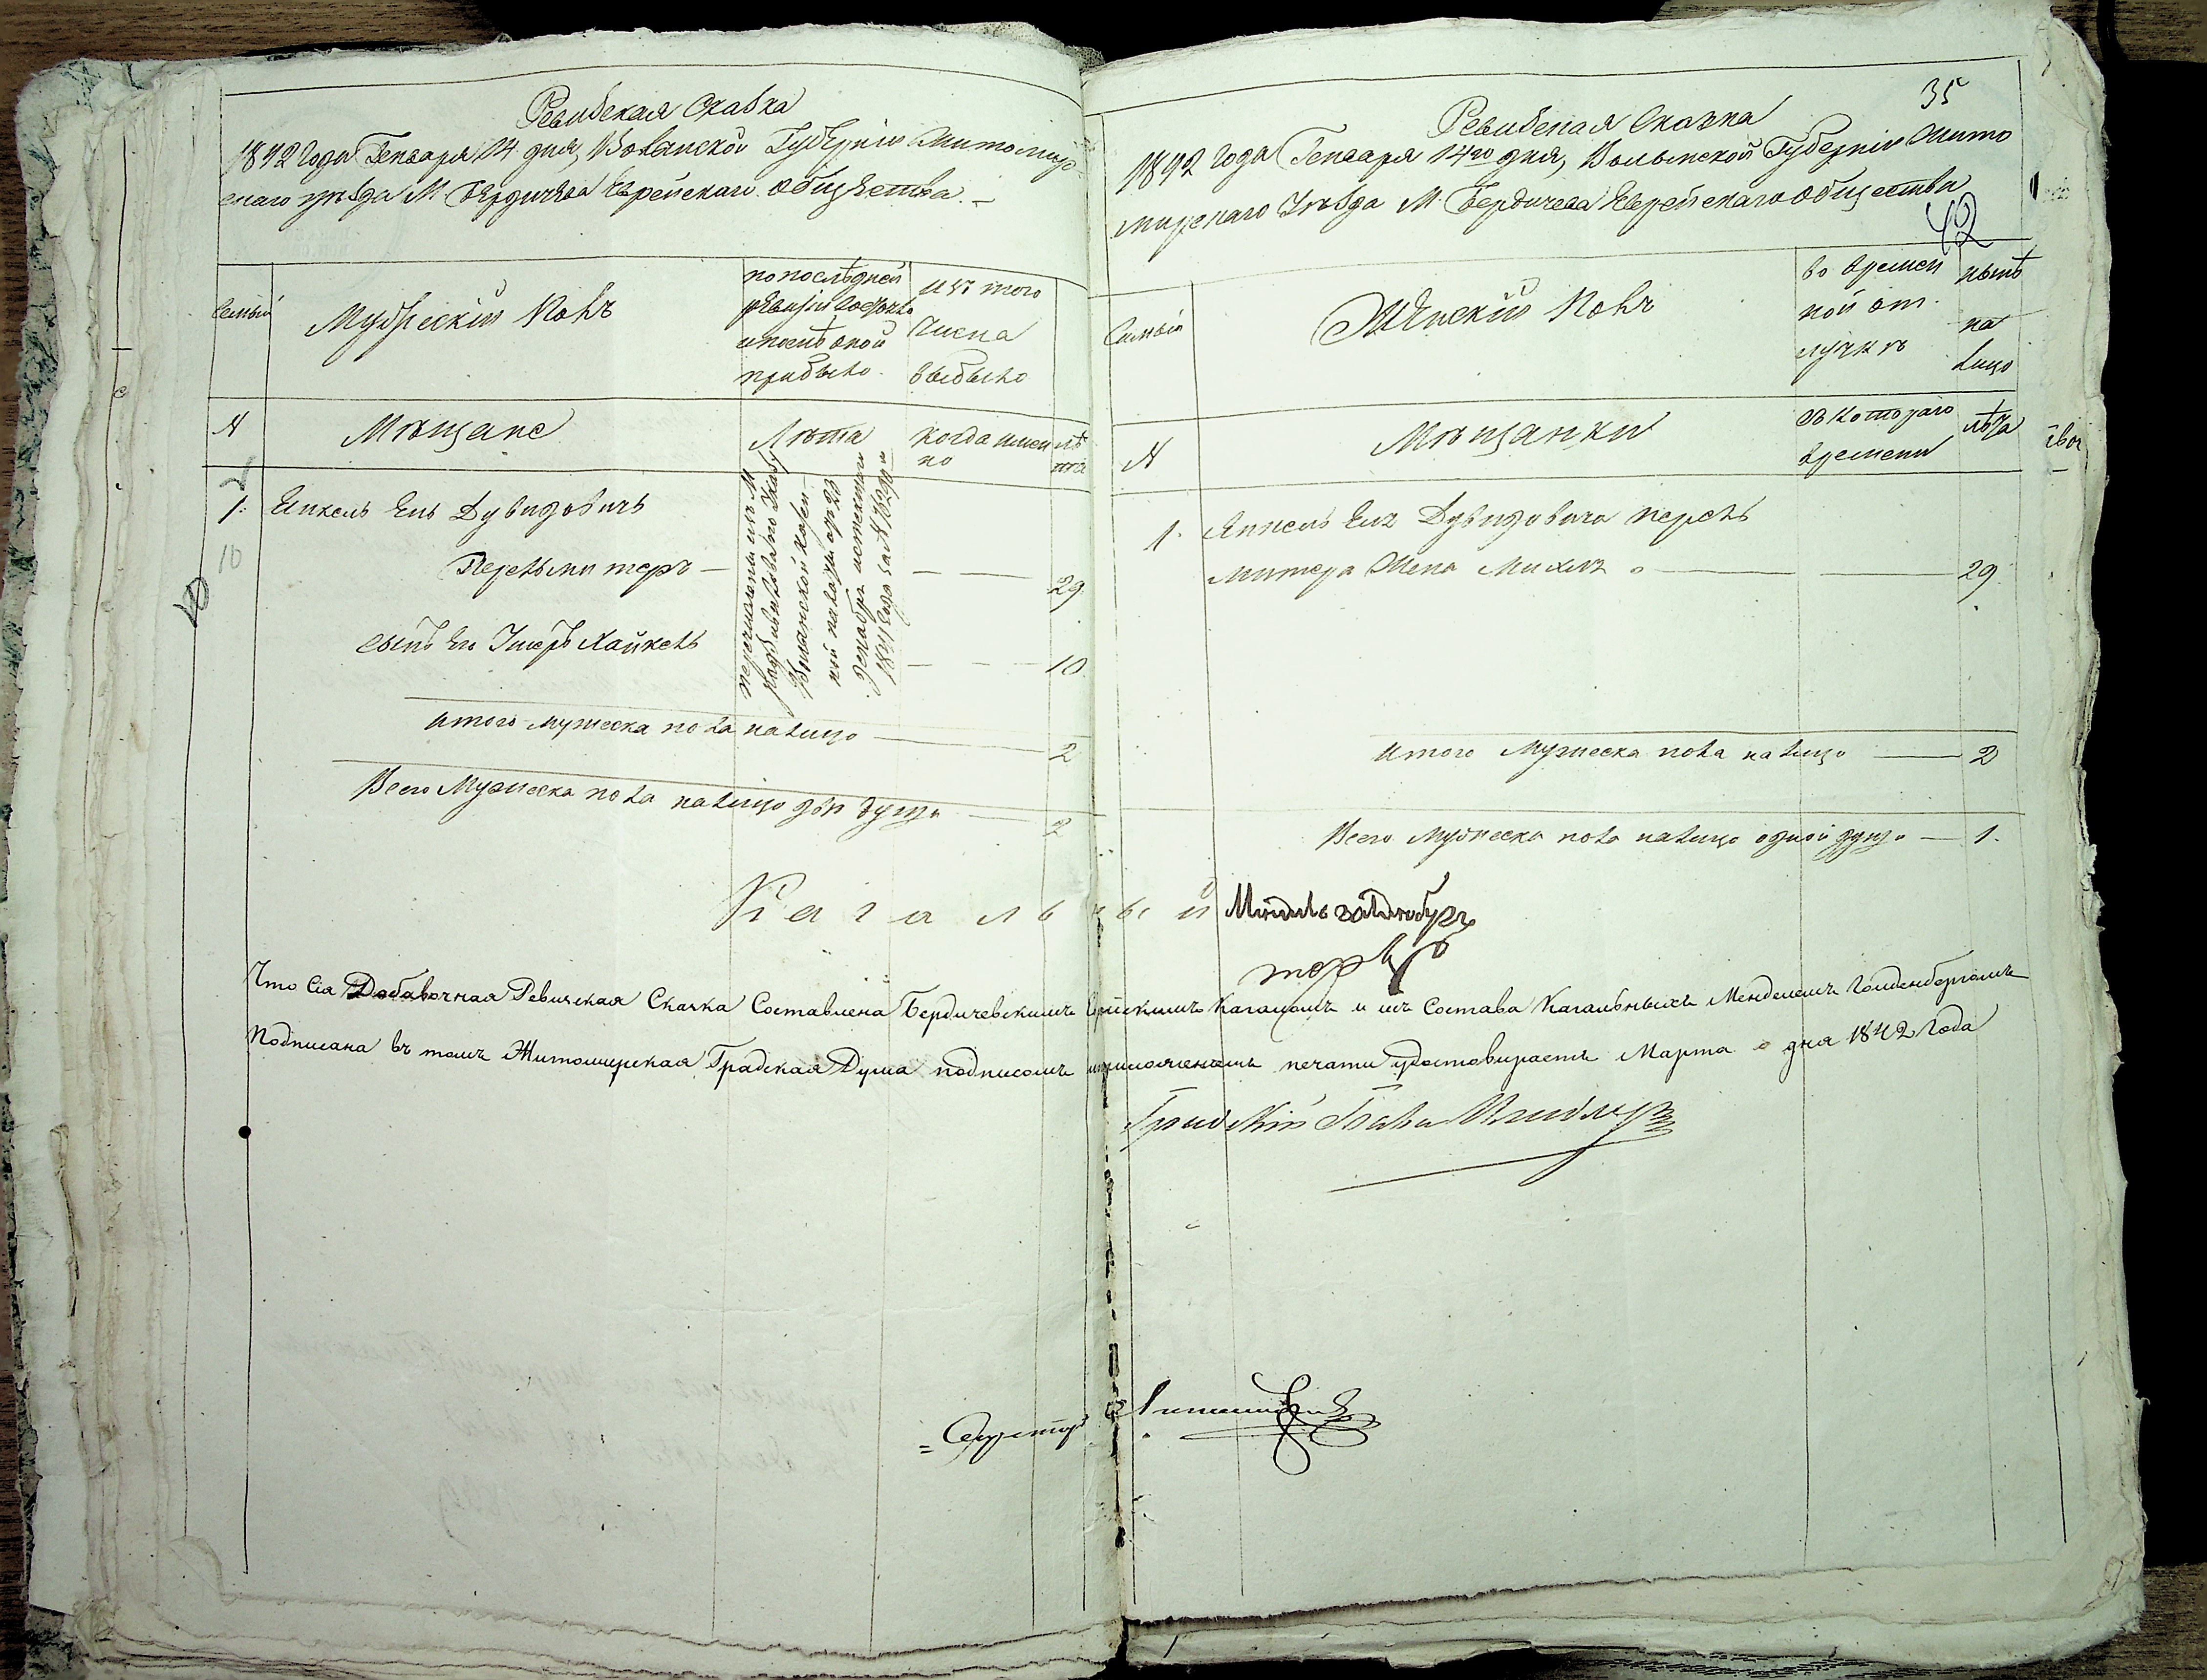 Ревизская Сказка
1842 года Генваря 14 дня, Волынской Губернии Житомир
скаго уѣзда М Бердичева Еврейскаго Общества.
Семьи
Мужескій Полъ
по послѣдней
ревизіи состояло
и послѣ оной
прибыло.
изъ того
числа
выбыло
№
Мѣщане
Лѣта
когда имен
но
лѣ
та
1.
10
Янкель Ель Дувидовичъ
Перельмитеръ
29
сынъ Его Хайкель
10
перечислены изъ М
Казен
ной палаты от 23
декабря истекшаго
1841 года за №
итого мужеска пола налицо
2
Всего Мужеска пола налицо двѣ души
2
35
Ревизская Сказка
1842 года Генваря 14го дня, Волынской Губерніи Жито
мирскаго Уѣзда М. Бердичева Еврейскаго Общества
42
Семьи
Женскій Полъ
во времен
ной от
лучкѣ
нынѣ
на
лицо
№
Мѣщанки
Съ котораго
времени
лѣта
1.
Янкеля Еля Дувидовича Перель
митера Жена Михля
29
итого Мужеска пола налицо
2
Всего Мужеска пола налицо одной души
1.
Кагальный Мендель Голденберг
Что Сія Добавочная Ревизская Сказка Составлена Бердичевскимъ Еврейскимъ Кагаломъ и изъ Состава Кагальныхъ Менделемъ Голденбергомъ
Подписана въ томъ Житомирская Градская Дума подписомъ и приложеніемъ печати удостовѣряетъ Марта дня 1842 Года
Градскій Глава
Секретарь